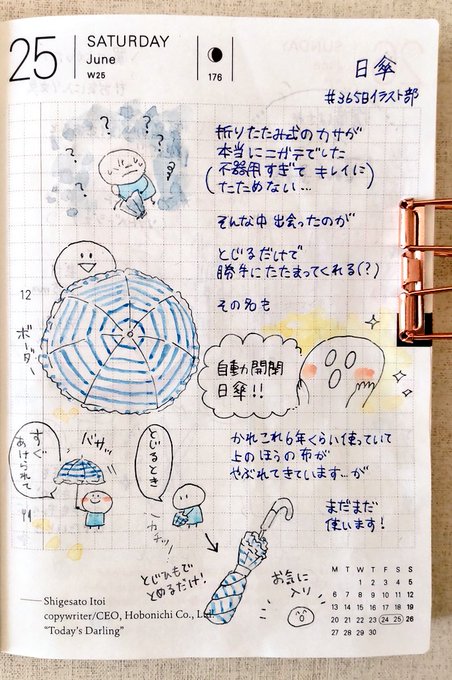 25
SATURDAY
June
W25
176
日傘
#365日イラスト部
? ? ? ? ?
折りたたみ式のカサが
本当にニガテでした
(不器用すぎて キレイに
たためない…)
そんな中 出会ったのが
とじるだけで
勝手にたたまってくれる(?)
その名も
12
ボーダー
自動開閉
日傘!!
すぐ
あけられて
バサッ
とじるとき
カチッ
かれこれ6年くらい使っていて
上のほうの布が
やぶれてきています…が
まだまだ
使います!
とじひもで
とめるだけ!
お気に
入り
Shigesato Itoi
copywriter/CEO, Hobonichi Co., Ltd.
"Today's Darling"
M T W T F S S
1 2 3 4 5
6 7 8 9 10 11 12
13 14 15 16 17 18 19
20 21 22 23 24 25 26
27 28 29 30